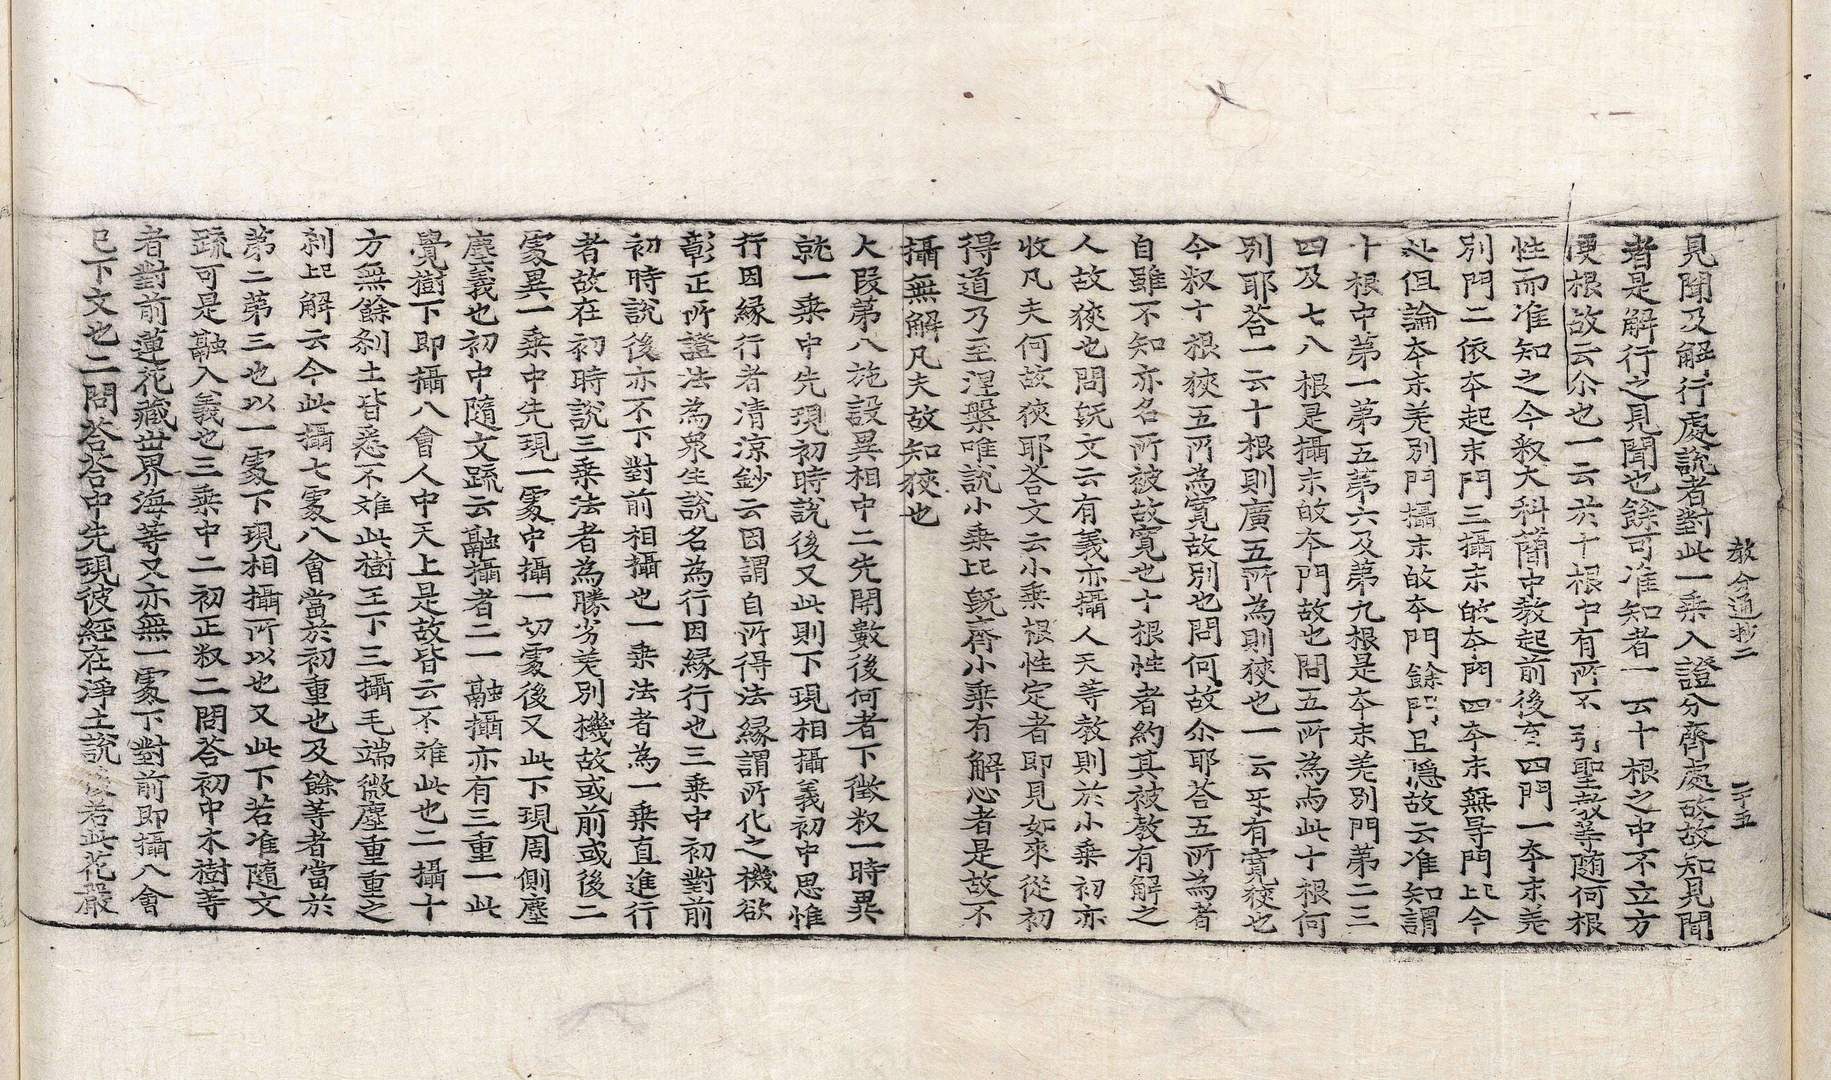 教分通抄二　二十五
見聞及解行處說者對此一乘入證分齊處故故知見聞
者是解行之見聞也餘可准知者一云十根之中不立方
便根故云尒也一云於十根中有所不引聖敎等随何根
性而准知之今叙大科䔵中教起前後有四門一夲末羌
別門二依夲起末門三攝末皈夲門四夲末無㝵門比今
此但論夲末羌別門攝末皈夲門餘門且隱故云准知謂
十根中第一第五第六及第九根是夲末羌別門第二三
四及七八根是攝末皈夲門故也問五所為与此十根何
別耶荅一云十根則廣五所為則狹也一云乎有寬狹也
今叙十根狹五所為寬故別也問何故尒耶荅五所為者
自雖不知亦名所被故寬也十根性者約其被敎有解之
人故狹也問旣文云有義亦攝人天等教則於小乘初亦
收凡夫何故狹耶荅文云小乘根性定者即見如來從初
得道乃至涅槃唯說小乘比旣齊小乘有解心者是故不
攝無解凡夫故知狹也
大段第八施設異相中二先開數後何者下徵叙一時異
就一乘中先現初時說後又此則下現相攝義初中思惟
行因緣行者清凉鈔云因謂自所得法緣謂所化之機欲
彰正所證法為衆生說名為行因緣行也三乘中初對前
初時說後亦不下對前相攝也一乘法者為一乘直進行
者故在初時說三乘法者為勝劣羌別機故或前或後二
處異一乘中先現一處中攝一切處後又此下現周側塵
塵義也初中隨文䟽云融攝者二一融攝亦有三重一此
覺樹下即攝八會人中天上是故皆云不難此也二攝十
方無餘刹土皆悉不难此樹王下三攝毛端微塵重重之
刹比解云今此攝七處八會當於初重也及餘等者當於
第二第三也以一處下現相攝所以也又此下若准隨文
䟽可是融入義也三乘中二初正叙二問荅初中木樹等
者對前蓮花藏世界海等又亦無一處下對前即攝八會
已下文也二問荅荅中先現彼經在淨土說後若此花嚴